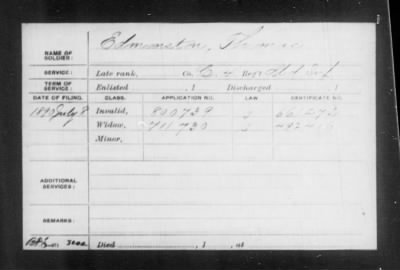 NAME OF SOLDIER: Edmonston, Thomas
SERVICE: Late rank, Co. C, 4 Reg't Md Inf
TERM OF SERVICE: Enlisted , 1 Discharged , 1
DATE OF FILING. CLASS. APPLICATION NO. LAW CERTIFICATE NO.
1890 July 8 Invalid, 800739
Widow,
Minor,
ADDITIONAL SERVICES:
REMARKS:
Died , 1 , at